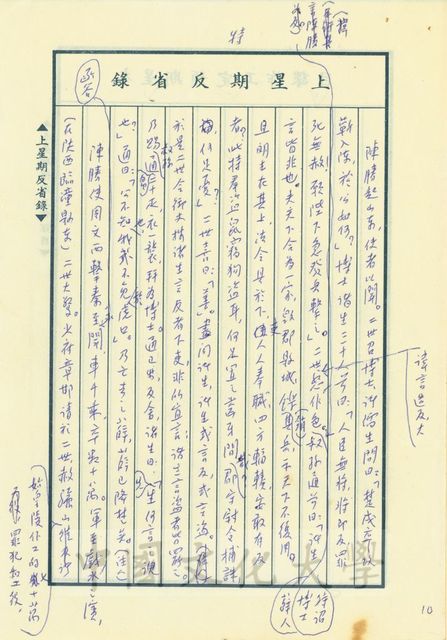 特
上星期反省錄
陳勝起山東,使者以聞。二世召博士諸儒生問曰:「楚戍卒攻
蘄入陳,於公如何?」博士諸生三十人前曰:「人臣無將,將即反罪
死無赦。願陛下急發兵擊之。」二世怒作色。叔孫通前曰:「諸生
言皆非也。夫天下合為一家,毀郡縣城,鑠其兵,示天下不復用。
且明主在其上,法令具於下,使人人奉職,四方輻輳,安敢有反
者?此特群盜鼠竊狗盜耳,何足置之齒牙間?郡守尉今捕誅
何足憂?」二世喜曰:「善。」盡問諸生,諸生或言反,或言盜。
於是二世令御史按諸生言反者下吏,非所宜言。諸言盜者皆罷之。
乃賜通帛,衣一襲,拜為博士。通已出,反舍,諸生曰:「生何言諛
也?」通曰:「公不知,我幾不免虎口。」乃亡去之薛,薛已降楚矣。
陳勝使周文西擊秦,至關,車千乘,卒數十萬,軍至戲水之濱,
(在陝西臨潼縣東)二世大驚。少府章邯請於二世赦驪山
諱言造反夫
待詔
博士
▲上星期反省錄▼
中國文化大學
10